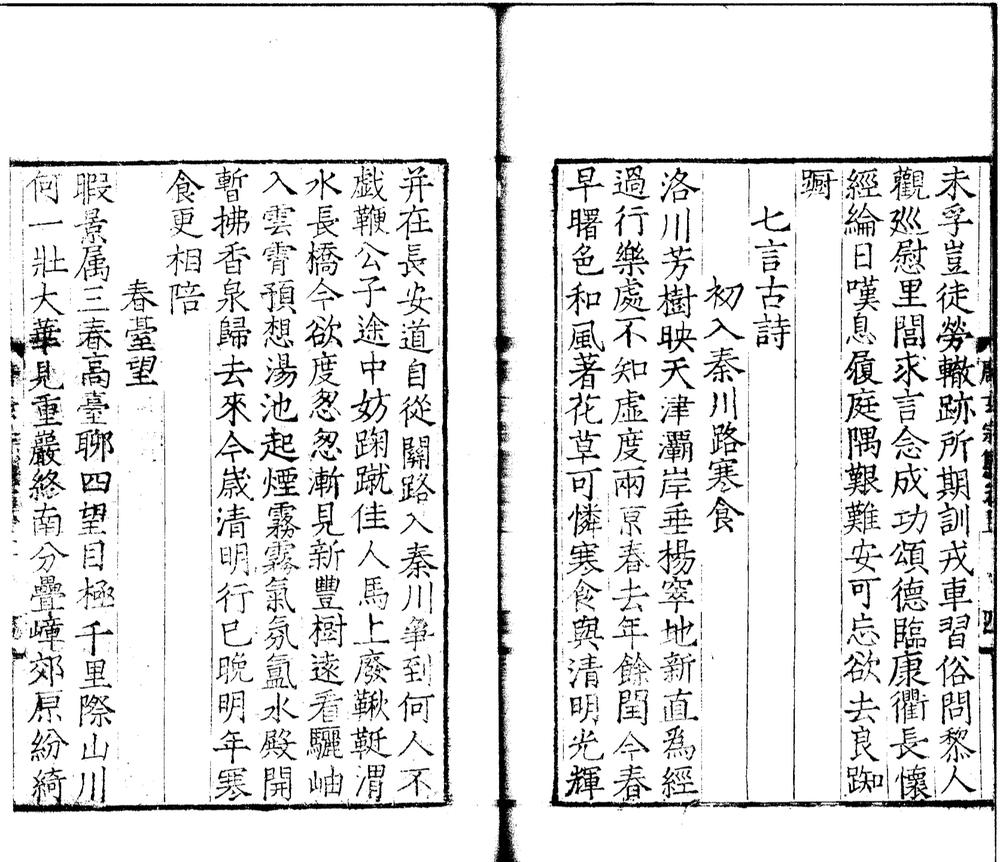 未孚豈徒勞轍跡所期訓戎車習俗問黎人
觀廵慰里閭求言念成功頌德臨康衢長懷
經綸日嘆息履庭隅艱難安可忘欲去良踟
蹰
七言古詩
初入秦川路寒食
洛川芳樹映天津灞岸垂楊窣地新直為經
過行樂處不知虚度兩京春去年餘閏今春
早曙色和風著花草可憐寒食與清明光輝
并在長安道自從關路入秦川爭到何人不
戯鞭公子途中妨蹴佳人馬上廢鞦韆渭
水長橋今欲度忽忽漸見新豐樹遠看驪岫
入雲霄預想湯池起煙霧霧氣氛氳水殿開
暫拂香泉歸去來今歲清明行已晚明年寒
食更相陪
春臺望
暇景属三春高臺聊四望目極千里際山川
何一壯大華見重巖終南分疊嶂郊原紛綺